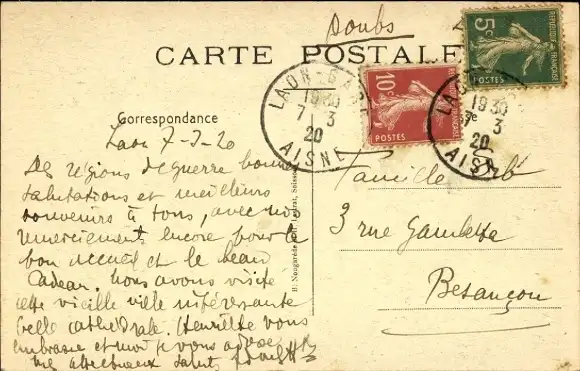 Doubs
CARTE POSTALE
Correspondance
Laon 7-3-20
Des régions de guerre bonnes
salutations et meilleurs
souvenirs à tous, avec nos
remerciements encore pour le
bon accueil et le beau
Cadeau. Nous avons visité
cette vieille ville intéressante
belle cathédrale. Henriette vous
embrasse et moi je vous
mes affectueux saluts
LAON-GARE
1930
7 - 3
20
AISNE
10c
POSTES
REPUBLIQUE FRANÇAISE
5c
POSTES
REPUBLIQUE FRANÇAISE
LAON
1930
7 3
20
AISNE
Famille
3 rue Gambetta
Besançon
Nougarède
Soissons